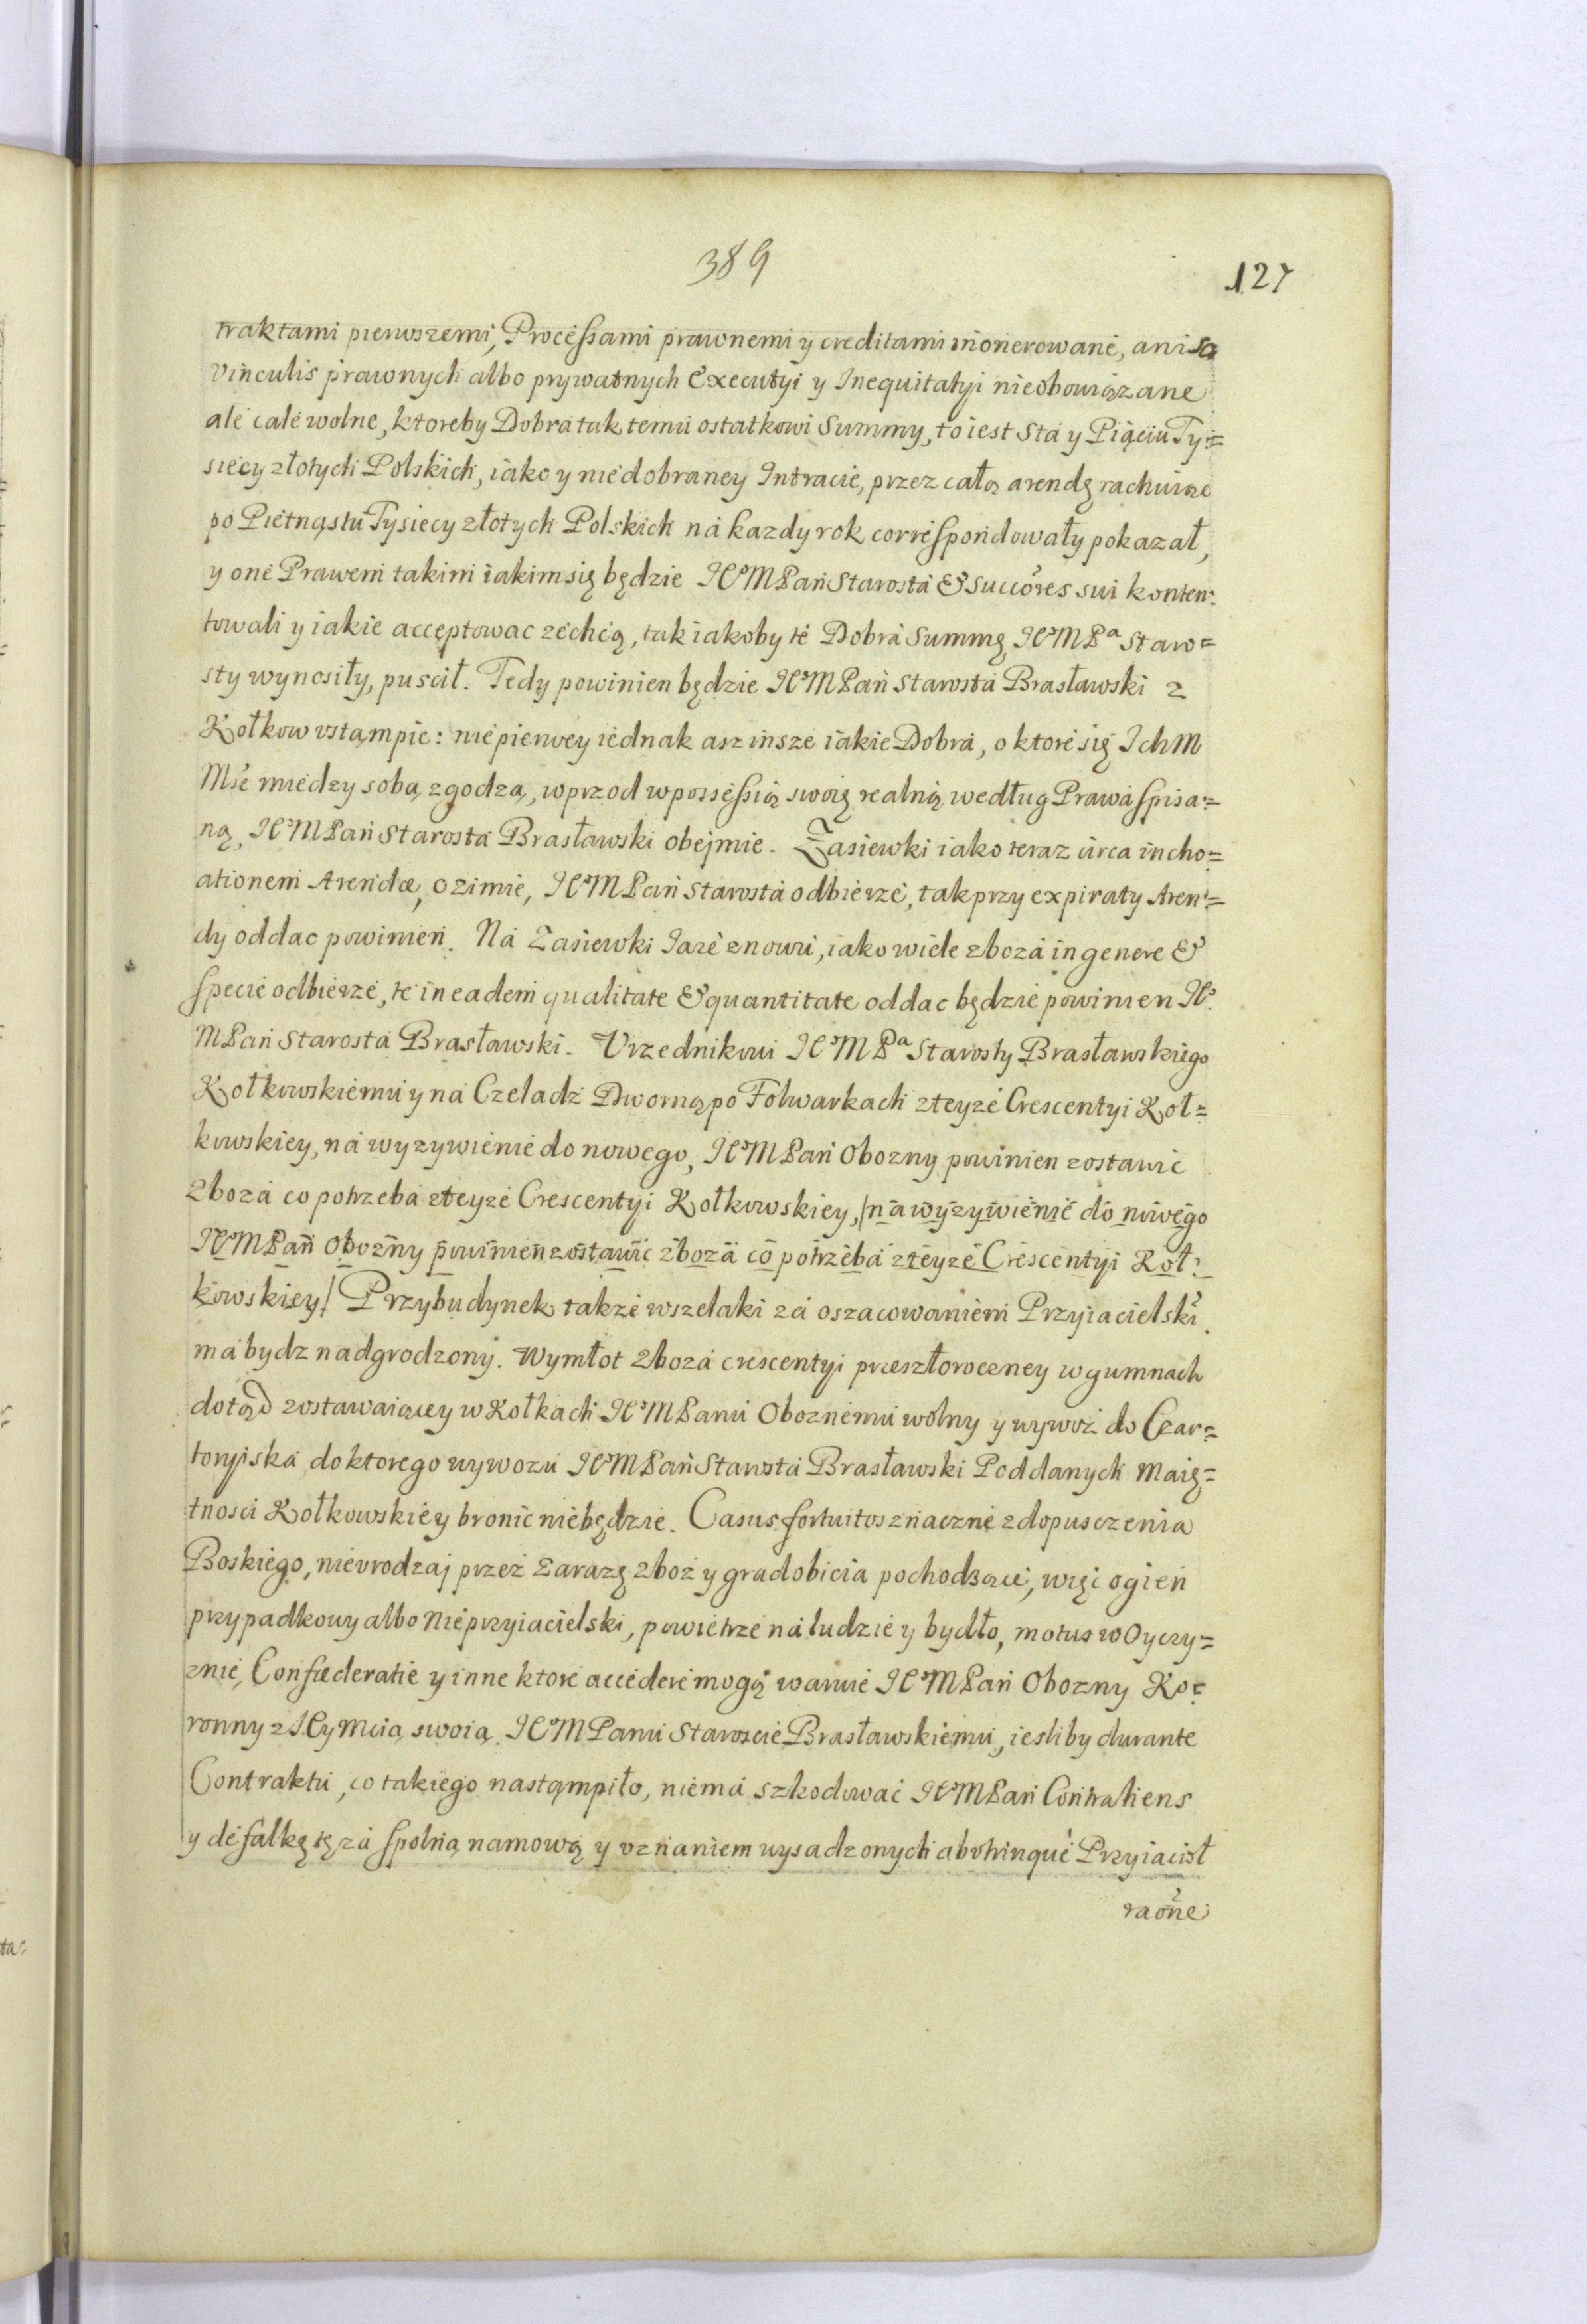 389
127
traktami pierwszemi, Processami prawnemi y creditami inonerowane, ani są
vinculis prawnych albo prywatnych Executyi y Inequitatyi nieobowiązane
ale cale wolne, ktoreby Dobra tak temu ostatkowi Summy, to iest Sta y Piąciu Ty=
siecy złotych Polskich, iako y niedobraney Intracie, przez całą arendę rachuiąc
po Piętnąstu Tysiecy złotych Polskich na kazdy rok correspondowały pokazał,
y one Prawem takim iakim się będzie JEo M Pan Starosta & Succores sui konten=
towali y iakie acceptowac zechcą, tak iakoby te Dobra Summę JEo M Pa Staro=
sty wynosiły, puscił. Tedy powinien będzie JEo M Pan Starosta Brasławski z
Kołkow ustąmpic: niepierwey iednak asz insze iakie Dobra, o ktore się Ich M
Mśe miedzy sobą zgodzą, wprzod w possessią swoię realną według Prawa spisa=
ną, JEo M Pan Starosta Brasławski obejmie. Zasiewki iako teraz circa incho=
ationem Arendæ, ozimie, JEo M Pan Starosta odbierze, tak przy expiraty Aren=
dy oddac powinien. Na Zasiewki Jare znowu, iako wiele zboza in genere &
specie odbierze, te in eadem qualitate & quantitate oddac będzie powinien JEo
M Pan Starosta Brasławski. Vrzednikowi JEo M Pa Starosty Brasławskiego
Kołkowskiemu y na Czeladz Dworną po Folwarkach z teyze Crescentyi Koł=
kowskiey, na wyzywienie do nowego, JEo M Pan Obozny powinien zostawic
Zboza co potrzeba z teyze Crescentyi Kołkowskiey, /na wyzywienie do nowego
JEo M Pan Obozny powinien zostawic zboza co potrzeba z teyze Crescentyi Koł=
kowskiey/ Przybudynek takze wszelaki za oszacowaniem Przyiacielski
ma bydz nadgrodzony. Wymłot Zboza crescentyi przeszłoroczney w gumnach
dotąd zostawaiącey w Kołkach JEo M Panu Oboznemu wolny y wywoz do Czar=
toryiska, do ktorego wywozu JEo M Pan Starosta Brasławski Poddanych Maię=
tnosci Kołkowskiey bronic niebędzie. Casus fortuitos znaczne z dopusczenia
Boskiego, nieurodzaj przez Zarazę zboz y gradobicia pochodzące, więc ogien
przypadkowy albo Nieprzyiacielski, powietrze na ludzie y bydło, motus w Oyczy=
znie, Confœderatie y inne ktore accedere mogą waruie JEo M Pan Obozny Ko=
ronny z JEy Mcią swoią JEo M Panu Staroscie Brasławskiemu, iesliby durante
Contraktu, co takiego nastąmpiło, niema szkodować JEo M Pan Contrahens
y defalkę tę za spolną namową y uznaniem wysadzonych ab utrinque Przyiacioł
raone